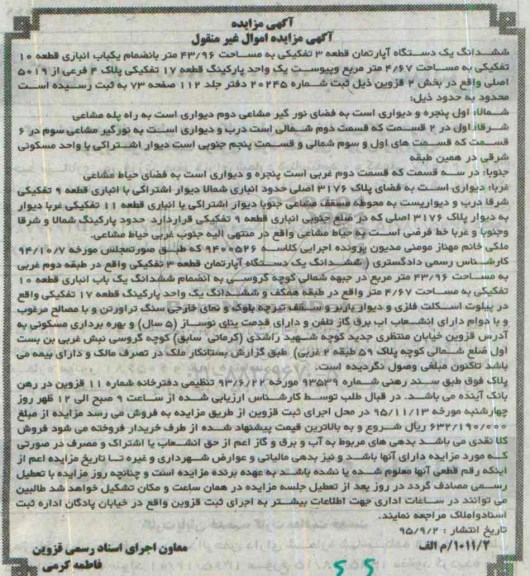 آگهی مزایده
آگهی مزایده اموال غیر منقول
ششدانگ یک دستگاه آپارتمان قطعه ۳ تفکیکی به مساحت ۴۳/۹۶ متر بانضمام یکباب انباری قطعه ۱۰
تفکیکی به مساحت ۴/۶۷ متر مربع وپیوست یک واحد پارکینگ قطعه ۱۷ تفکیکی پلاک ۴ فرعی از ۵۰۱۹
اصلی واقع در بخش ۲ قزوین ذیل ثبت شماره ۲۰۲۴۵ دفتر جلد ۱۱۲ صفحه ۷۳ به ثبت رسیده است
محدود به حدود ذیل:
شمالا: اول پنجره و دیواری است به فضای نور گیر مشاعی دوم دیواری است به راه پله مشاعی
شرقا: اول در ۲ قسمت که قسمت دوم شمالی است درب و دیواری است به نورگیر مشاعی سوم در ۶
قسمت که قسمت های اول و سوم شمالی و قسمت پنجم جنوبی است دیوار اشتراکی با واحد مسکونی
شرقی در همین طبقه
جنوبا: در سه قسمت که قسمت دوم غربی است پنجره و دیواری است به فضای حیاط مشاعی
غربا: دیواری است به فضای پلاک ۳۱۷۶ اصلی حدود انباری شمالا دیوار اشتراکی با انباری قطعه ۹ تفکیکی
شرقا درب و دیواریست به محوطه مسقف مشاعی جنوبا دیوار اشتراکی با انباری قطعه ۱۱ تفکیکی غربا دیوار
به دیوار پلاک ۳۱۷۶ اصلی که در ضلع جنوبی انباری قطعه ۹ تفکیکی قراردارد. حدود پارکینگ شمالا و شرقا
وجنوبا و غربا خط فرضی است به حیاط مشاعی واقع در منتهی الیه جنوب غربی حیاط مشاعی.
ملکی خانم مهناز مومنی مدیون پرونده اجرایی کلاسه ۹۴۰۰۵۲۶ که طبق صورتمجلس مورخه ۹۴/۱۰/۷
کارشناس رسمی دادگستری (ششدانگ یک دستگاه آپارتمان قطعه ۳ تفکیکی واقع در طبقه دوم غربی
به مساحت ۴۳/۹۶ متر مربع در جبهه شمالی کوچه گروسی به انضمام ششدانگ یک باب انباری قطعه ۱۰
تفکیکی به مساحت ۴/۶۷ متر واقع در طبقه همکف و ششدانگ یک واحد پارکینگ قطعه ۱۷ تفکیکی واقع
در پیلوت اسکلت فلزی و دیوار باربر و سقف تیرچه بلوک و نمای خارجی سنگ تراورتن و با مصالح مرغوب
و با دوام دارای انشعاب آب برق گاز تلفن و دارای قدمت بنای نوساز (۵ سال) و بهره برداری مسکونی به
آدرس قزوین خیابان منتظری جدید کوچه شهید راشدی (کرمانی سابق) کوچه گروسی نبش غربی بن بست
اول ضلع شمالی کوچه پلاک ۵۹ طبقه ۲ غربی) طبق گزارش بستانکار ملک در تصرف مالک و دارای بیمه می
باشد تاکنون مبلغی وصول نگردیده است.
پلاک فوق طبق سند رهنی شماره ۹۳۵۳۹ مورخه ۹۳/۶/۲۲ تنظیمی دفترخانه شماره ۱۱ قزوین در رهن
بانک آینده می باشد. در قبال طلب توسط کارشناس ارزیابی شده از ساعت ۹ صبح الی ۱۲ ظهر روز
چهارشنبه مورخه ۹۵/۱۱/۱۳ در محل اجرای ثبت قزوین از طریق مزایده به فروش می رسد مزایده از مبلغ
۶۳۲/۱۹۰/۰۰۰ ریال شروع و به بالاترین قیمت پیشنهاد شده از طرف خریدار فروخته می شود فروش
کلا نقدی می باشد بدهی های مربوط به آب و برق و گاز اعم از حق انشعاب یا اشتراک و مصرف در صورتی
که مورد مزایده دارای آنها باشد و نیز بدهی مالیاتی و عوارض شهرداری و غیره تا تاریخ مزایده اعم از
اینکه رقم قطعی آنها معلوم شده یا نشده باشد به عهده برنده مزایده است و چنانچه روز مزایده با تعطیل
رسمی مصادف گردد در روز بعد از تعطیل جلسه مزایده در همان ساعت و مکان تشکیل خواهد شد طالبین
می توانند در ساعات اداری جهت اطلاعات بیشتر به اجرای ثبت قزوین واقع در خیابان پادگان اداره ثبت
اسنادواملاک مراجعه نمایند.
تاریخ انتشار : ۹۵/۹/۲
۱۰۱۱/۲/م الف
معاون اجرای اسناد رسمی قزوین
فاطمه کرمی